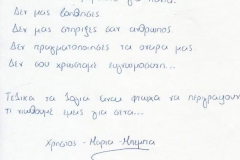 Δεν μας βοήθησες
Δεν μας στήριξες σαν άνθρωπος
Δεν πραγματοποίησες τα όνειρα μας
Δεν σου χρωστάμε ευγνωμοσύνη...
Τελικά τα λόγια είναι φτωχά να περιγράψουν
τι νιώθουμε εμείς για σένα...
Χρήστος - Μαρία - Μπέμπα